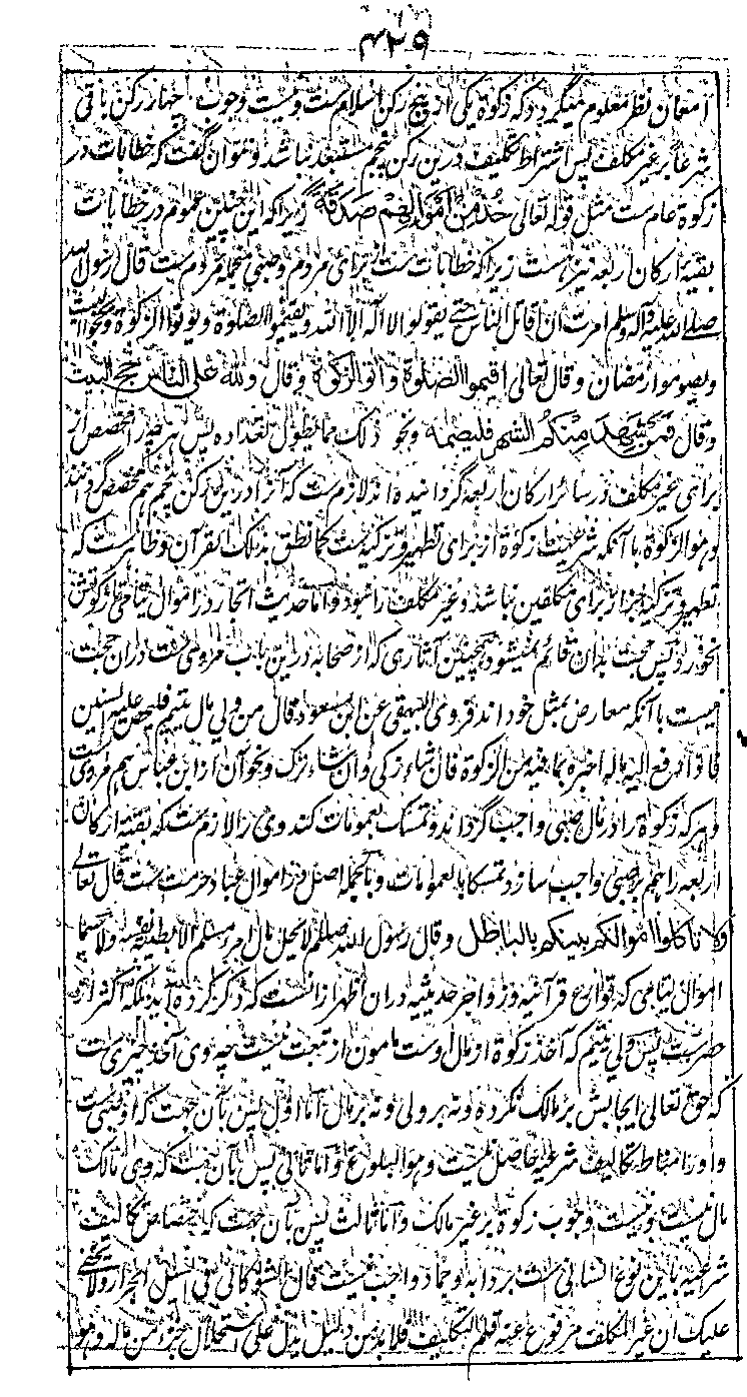 ۴۲۹
امعان نظر معلوم میگردد که زکوة یکی از پنج رکن اسلام ست و نیست وجوب چهار رکن باقی
شرعا بر غیر مکلف پس اشتراط تکلیف درین رکن پنجم مستبعد نباشد و نتوان گفت که خطابات در
زکوة عام ست مثل قوله تعالی خُذْ مِنْ اَمْوَالِهِمْ صَدَقَةً زیرا که این چنین عموم در خطابات
بقیه ارکان اربعه نیز هست زیرا که خطابات ست از برای مردم و صبی منجمله مردم ست قال رسول الله
صلی الله علیه و آله وسلم امرت ان اقاتل الناس حتے یقولوا لا اله الا الله و یقیموا الصلوة و یوتوا الزکوة و یحجوا البیت
و یصوموا رمضان و قال تعالی اقیموا الصلوة و اتوا الزکوة و قال و لله علی الناس حج البیت
و قال فمن شهد منکم الشهر فلیصمه و نحو ذلک مما یطول تعداده پس هر چه را مخصص از
برای غیر مکلف در سائر ارکان اربعه گردانیده اند لازم ست که آنرا درین رکن پنجم هم مخصص گردانند
و هو الزکوة با آنکه شرعیت زکوة از برای تطهیر و تزکیه ست کما نطق بذلک القرآن و ظاهرست که
تطهیر و تزکیه جز از برای مکلفین نباشد و غیر مکلف را نبود و اما حدیث اتجار در اموال یتامی تا زکوتش
نخورد پس حجت بدان قائم نمیشود همچنین آثاری که از صحابه درین باب مروی ست دران حجت
نیست با آنکه معارض بمثل خود اند فروی البیهقی عن ابن مسعود قال من ولی مال یتیم فلیحص علیه السنین
فاذا دفع الیه ماله اخبره بما فیه من الزکوة فان شاء زکی و ان شاء ترک و نحو آن از ابن عباس هم مروی ست
و هر که زکوة را در مال صبی واجب گرداند و تمسک بعمومات کند وی را لازم ست که بقیه ارکان
اربعه را هم بر صبی واجب سازد تمسکا بالعمومات و بالجمله اصل در اموال عباد حرمت ست قال تعالے
ولا تاکلوا اموالکم بینکم بالباطل و قال رسول الله صللم لا یحل مال امرء مسلم الا بطیبة نفسه ولا سیما
اموال یتامی که قوارع قرآنیه و زواجر حدیثیه دران اظهر ازانست که ذکر کرده آید بلکه اکثر از
حصرست پس ولی یتیم که آخذ زکوة از مال اوست مامون از تبعت نیست چه وی آخذ چیزی ست
که حق تعالی ایجابش بر مالک نکرده و نه بر ولی و نه بر مال اما اول پس بآن جهت که او صبی ست
و او را مناط تکالیف شرعیه حاصل نیست و هو البلوغ و اما ثانی پس بآن جهت که وی مالک
مال نیست و نیست وجوب زکوة بر غیر مالک و اما ثالث پس بآن جهت که اختصاص تکالیف
شرعیه باین نوع انسانی ست بر دابه و جماد واجب نیست قال الشوکانی فی السیل الجرار ولا یخفے
علیک ان غیر المکلف مرفوع عنه قلم التکلیف فلا بد من دلیل یدل علی استحلال جزء من ماله و هو